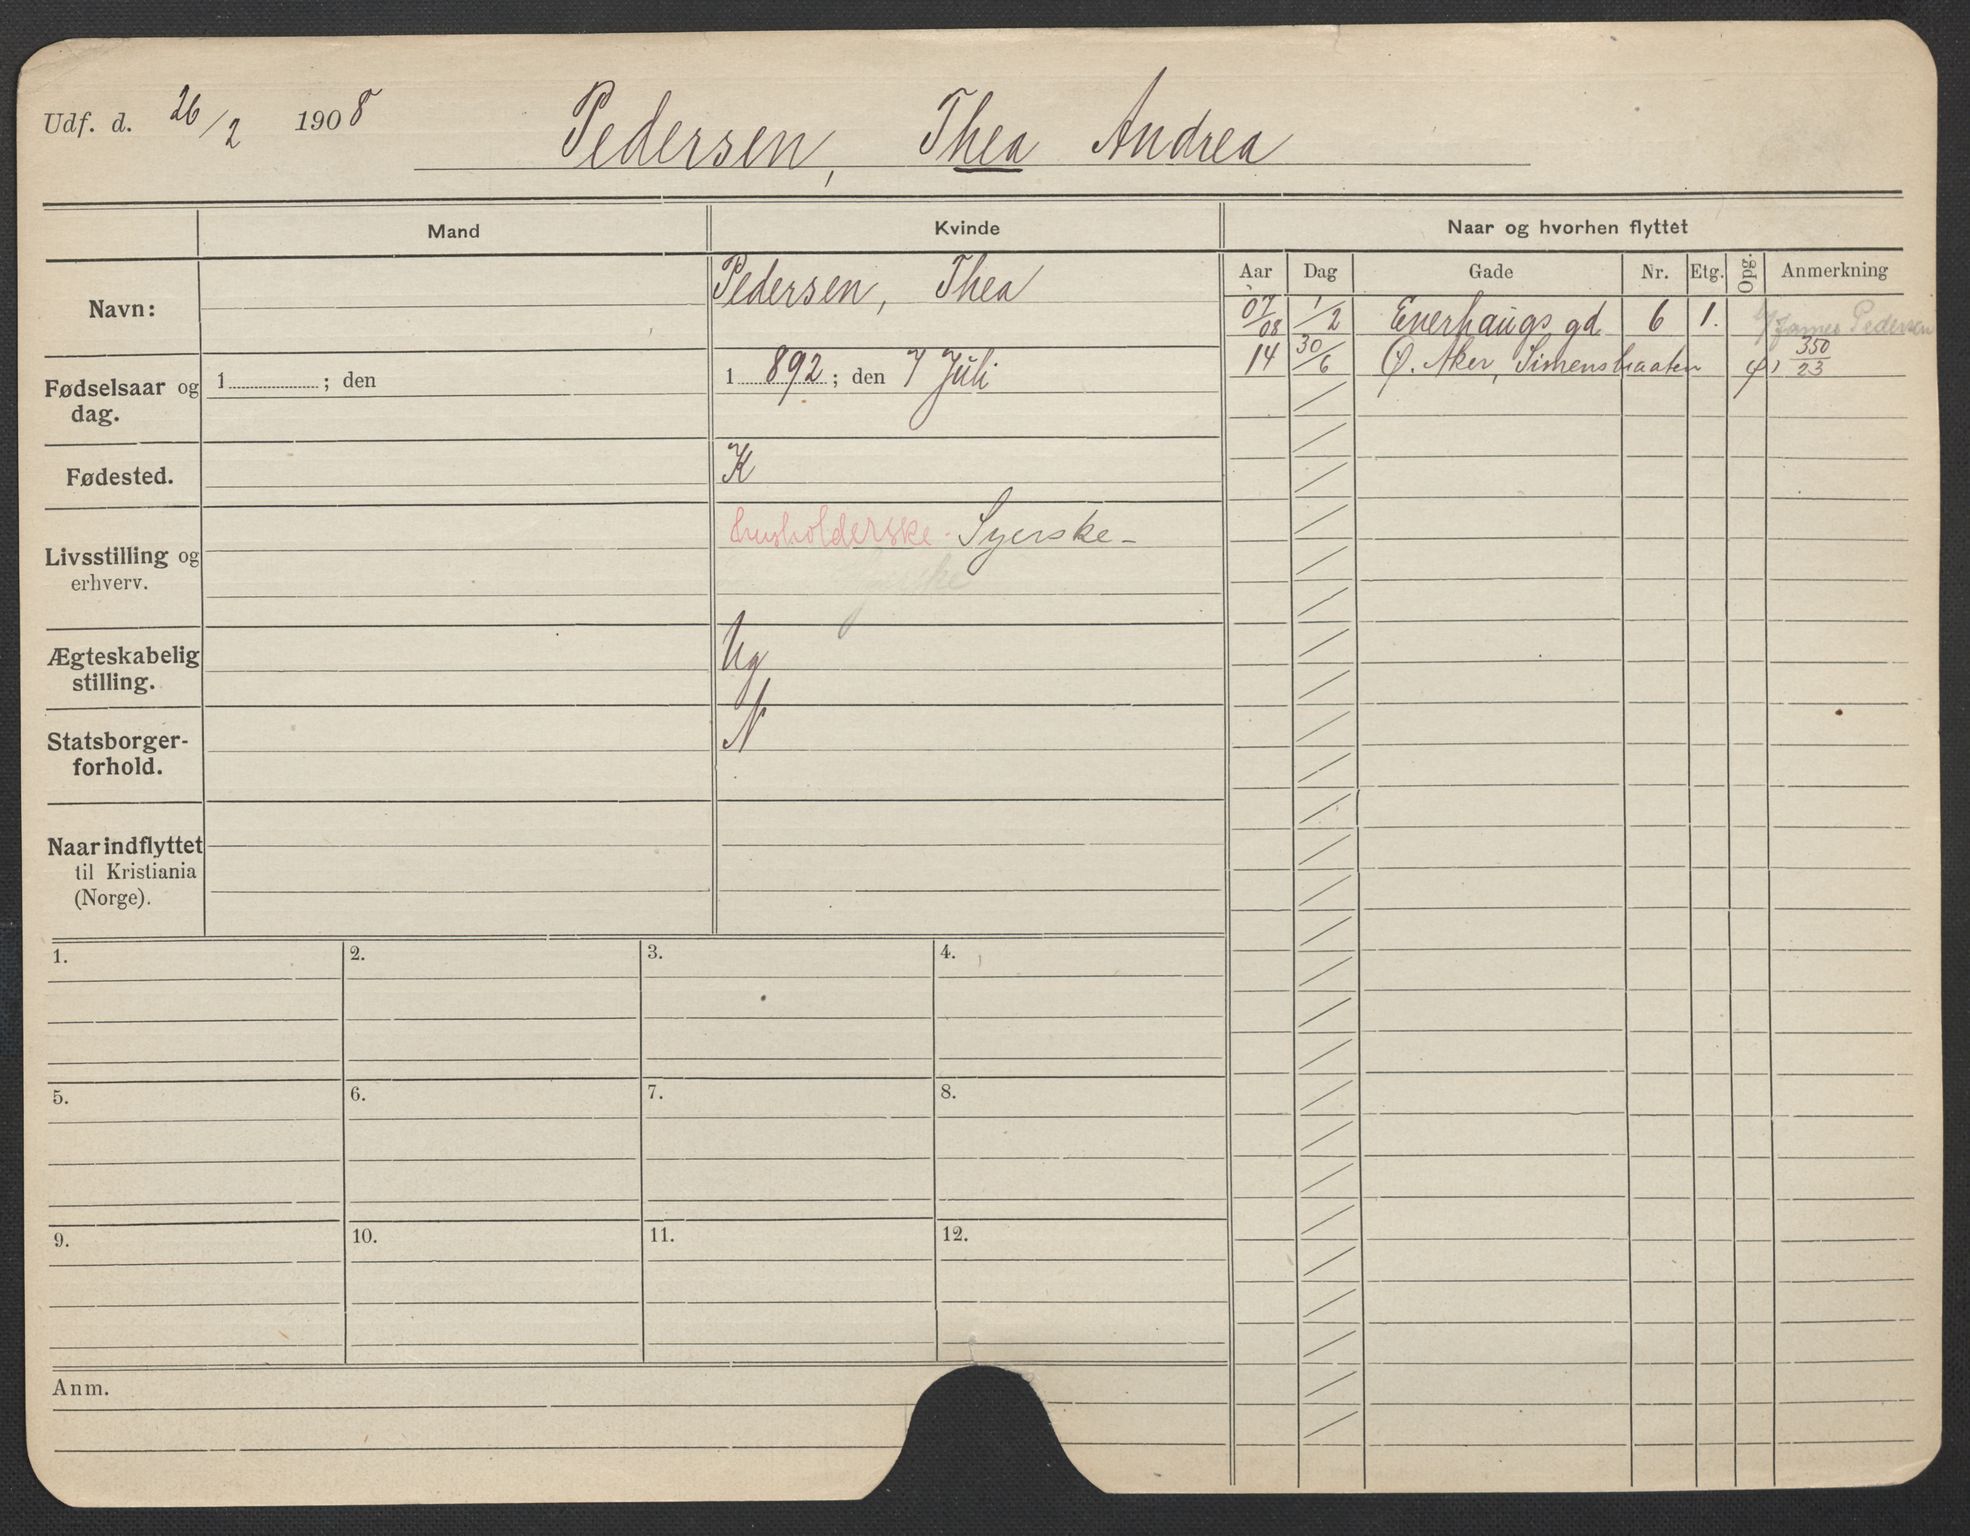 Udf. d. 26/2 1908 Pedersen, Thea Andrea
Mand Kvinde Naar og hvorhen flyttet
Aar Dag Gade Nr. Etg. Opg. Anmerkning
Navn: Pedersen, Thea
07/08 1/2 Enerhaugs gd 6 1. James Pedersen
14 30/6 Ø. Aker, Simenstraaten 350/23
Fødselsaar og dag. 1 ; den 1 892 ; den 7 Juli
Fødested. K
Livsstilling og erhverv. husholderske. Syerske-
Syerske
Ægteskabelig stilling. Ug
Statsborger-
forhold. N
Naar indflyttet
til Kristiania
(Norge).
1. 2. 3. 4.
5. 6. 7. 8.
9. 10. 11. 12.
Anm.